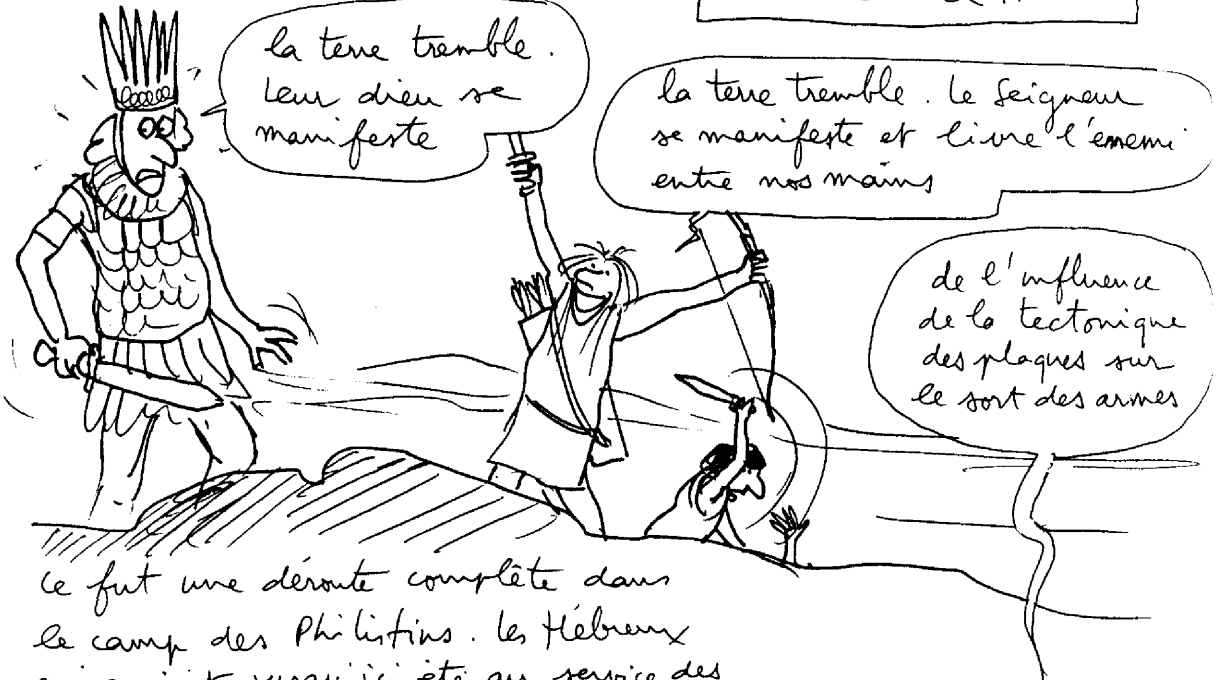 la terre tremble.
Leur dieu se
manifeste
la terre tremble. Le Seigneur
se manifeste et livre l'ennemi
entre nos mains
de l'influence
de la tectonique
des plaques sur
le sort des armes
Ce fut une déroute complête dans
le camp des Philistins. Les Hébreux
jusqu'ici été au service des